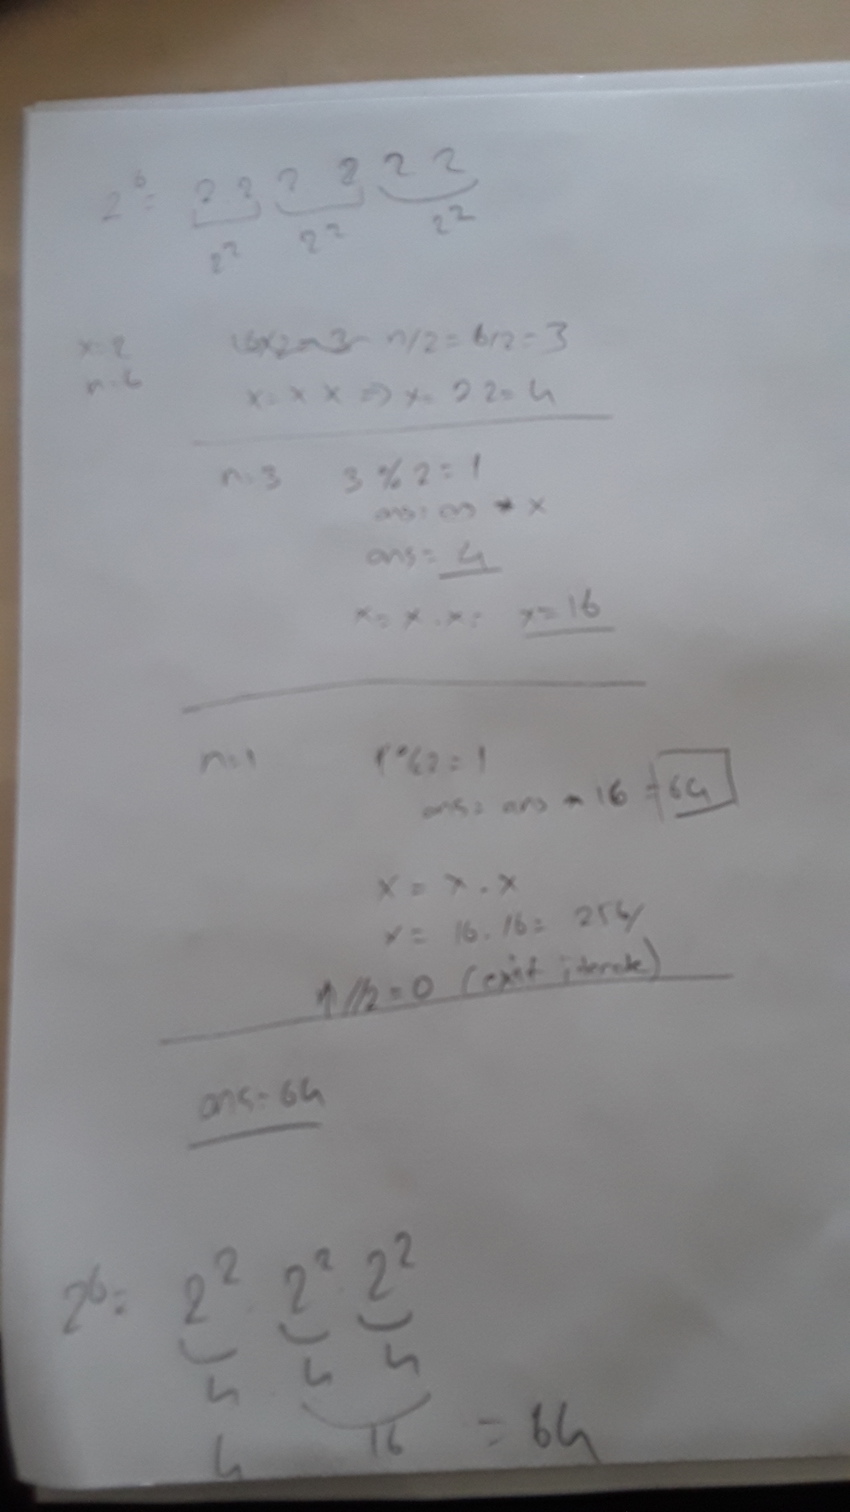 2^6 = 2 2 2 2 2 2
2^2 2^2 2^2
x=2 n/2 = 6/2 = 3
n=6 x = x x => x = 2 2 = 4
n=3 3 % 2 = 1
ans = ans * x
ans = 4
x = x . x = x = 16
n=1 1%2 = 1
ans = ans * 16 = 64
x = x . x
x = 16 . 16 =
1//2 = 0 (exit iterate)
ans = 64
2^6 = 2^2 . 2^2 . 2^2
4 . 4 4
4 16 = 64